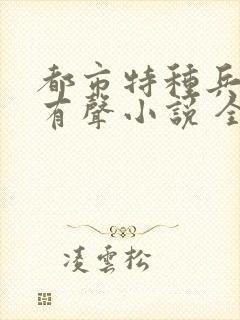 都市特種兵
有聲小說全
凌雲松